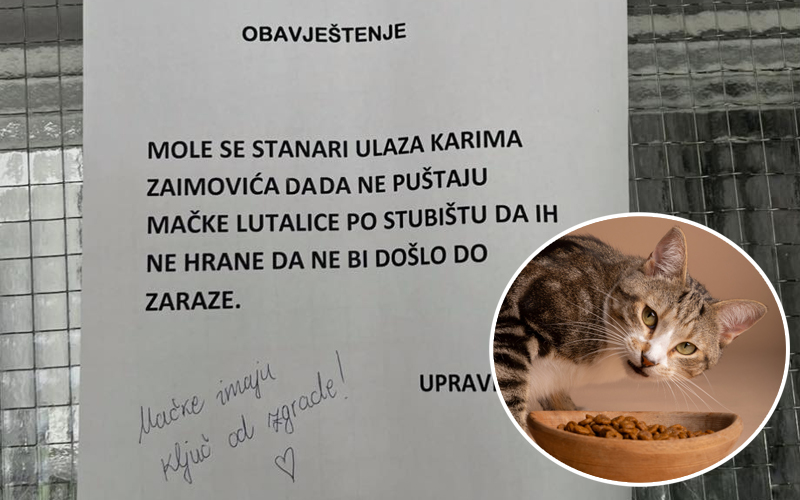 OBAVJEŠTENJE
MOLE SE STANARI ULAZA KARIMA
ZAIMOVIĆA DADA NE PUŠTAJU
MAČKE LUTALICE PO STUBIŠTU DA IH
NE HRANE DA NE BI DOŠLO DO
ZARAZE.
UPRAVI
Mačke imaju
ključ od zgrade!